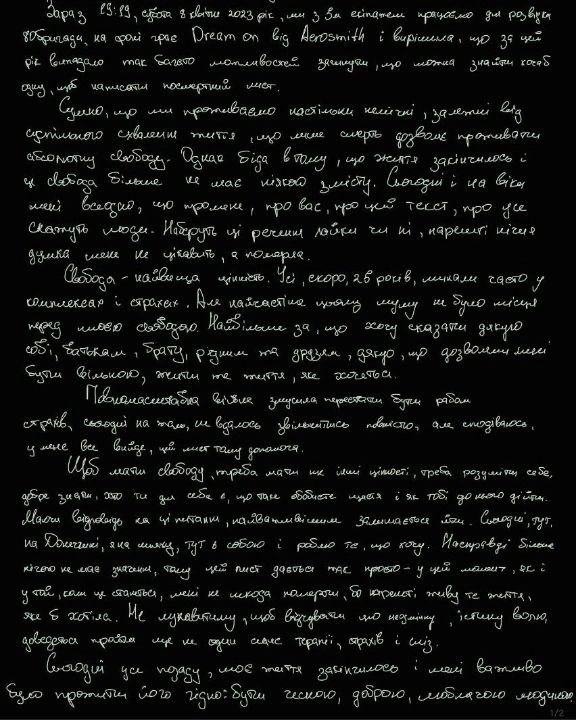 Зараз 19:19, субота 8 квітня 2023 рік, ми з 3м екіпажем працюємо для розвідки
80 бригади, на фоні грає Dream on від Aerosmith і вирішила, що за цей
рік випадало так багато можливостей загинути, що можна знайти хоча б
одну, щоб написати посмертний лист.
Сумно, що ми проживаємо настільки нелічні, залежні від
суспільного схвалення життя, що лише смерть дозволяє проживати
абсолютну свободу. Однак біда в тому, що життя закінчилось і
ця свобода більше не має ніякого змісту. Сьогодні і на віки
мені всеодно, що про мене, про вас, про цей текст, про усе
скажуть люди. Наберуть ці речення лайки чи ні, нарешті нічия
думка мене не цікавить, я померла.
Свобода - найвища цінність. Усі, скоро, 25 років, минали часто у
комплексах і страхах. Але найчастіше цьому шуму не було місця
перед моєю свободою. Найбільше за, що хочу сказати дякую
собі, батькам, брату, рідним та друзям, дякую, що дозволяли мені
бути вільною, жити те життя, яке хочеться.
Повномасштабна війна змусила перестати бути рабом
страхів, сьогодні на жаль, не вдалось звільнитись повністю, але сподіваюсь,
у мене все вийде, цей лист тому допомога.
Щоб мати свободу, треба мати ще інші цінності, треба розуміти себе,
добре знати, хто ти для себе є, що таке особисте щастя і як тобі до нього дійти.
Маючи відповідь на ці питання, найважливішим залишається йти. Сьогодні тут,
на Донеччині, я на шляху, тут я собою і роблю те, що хочу. Насправді більше
нічого не має значення, тому цей лист дається так просто - у цей момент, як і
у той, коли це станеться, мені не шкода померти, бо нарешті живу те життя,
яке б хотіла. Не лукавитиму, щоб відчувати що незмінну, істинну волю,
доведеться пройти ще не один сеанс терапії, страхів і сліз.
Сьогодні усе позаду, моє життя закінчилось і мені важливо
було прожити його гідно: бути чесною, доброю, люблячою людиною.
1/2